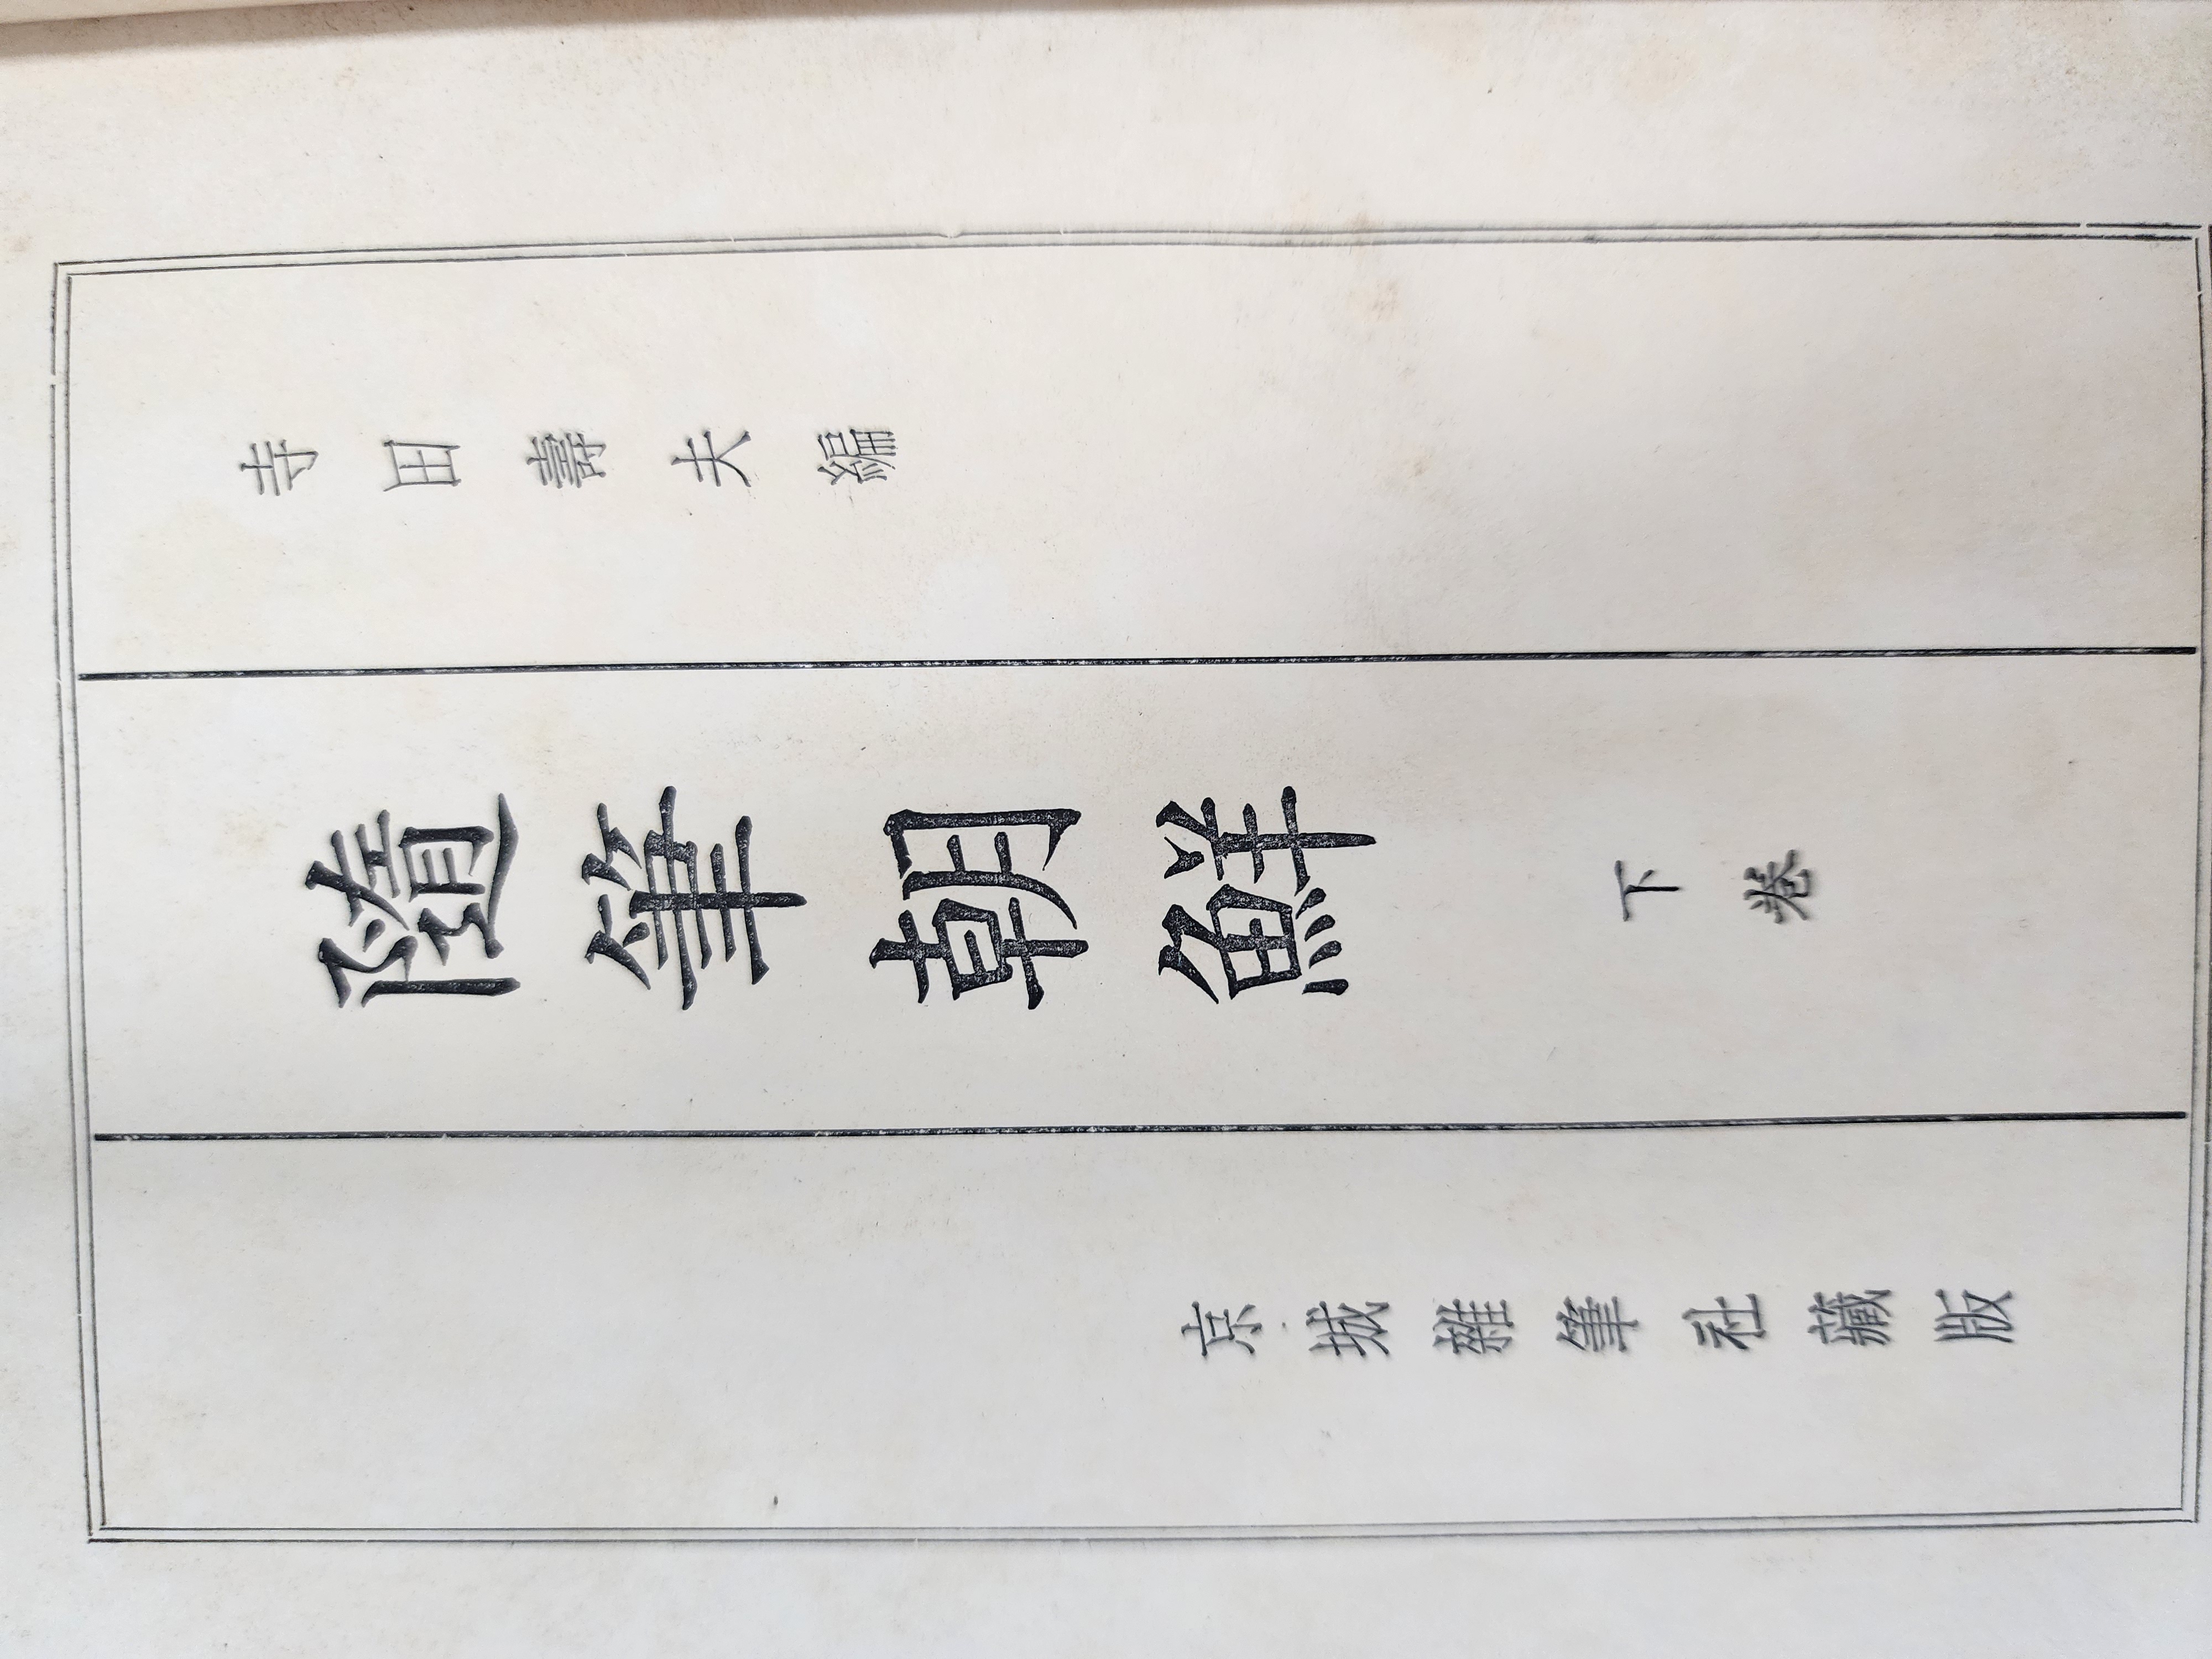 寺田壽夫編
隨筆朝鮮 下卷
京城雜筆社藏版